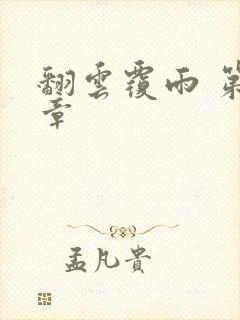 翻雲覆雨 第
章
孟凡貴